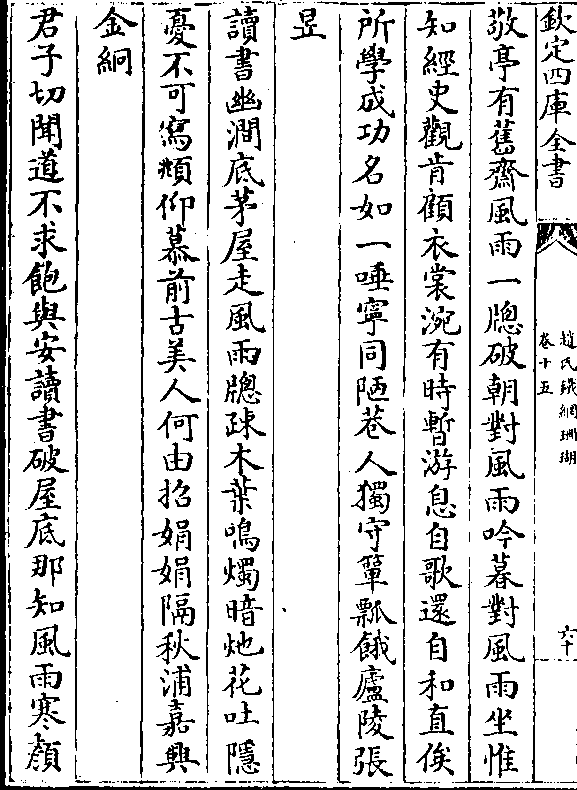 欽定四庫全書
趙氏鐵網珊瑚
卷十五
六十
敬亭有舊齋風雨一牕破朝對風雨吟暮對風雨坐惟
知經史觀肯顧衣裳涴有時暫游息自歌還自和直俟
所學成功名如一唾寧同陋巷人獨守簞瓢餓廬陵張
昱
讀書幽澗底茅屋走風雨牕疎木葉鳴燭暗灺花吐隱
憂不可寫頫仰慕前古美人何由招娟娟隔秋浦嘉興
金絅
君子切聞道不求飽與安讀書破屋底那知風雨寒顏